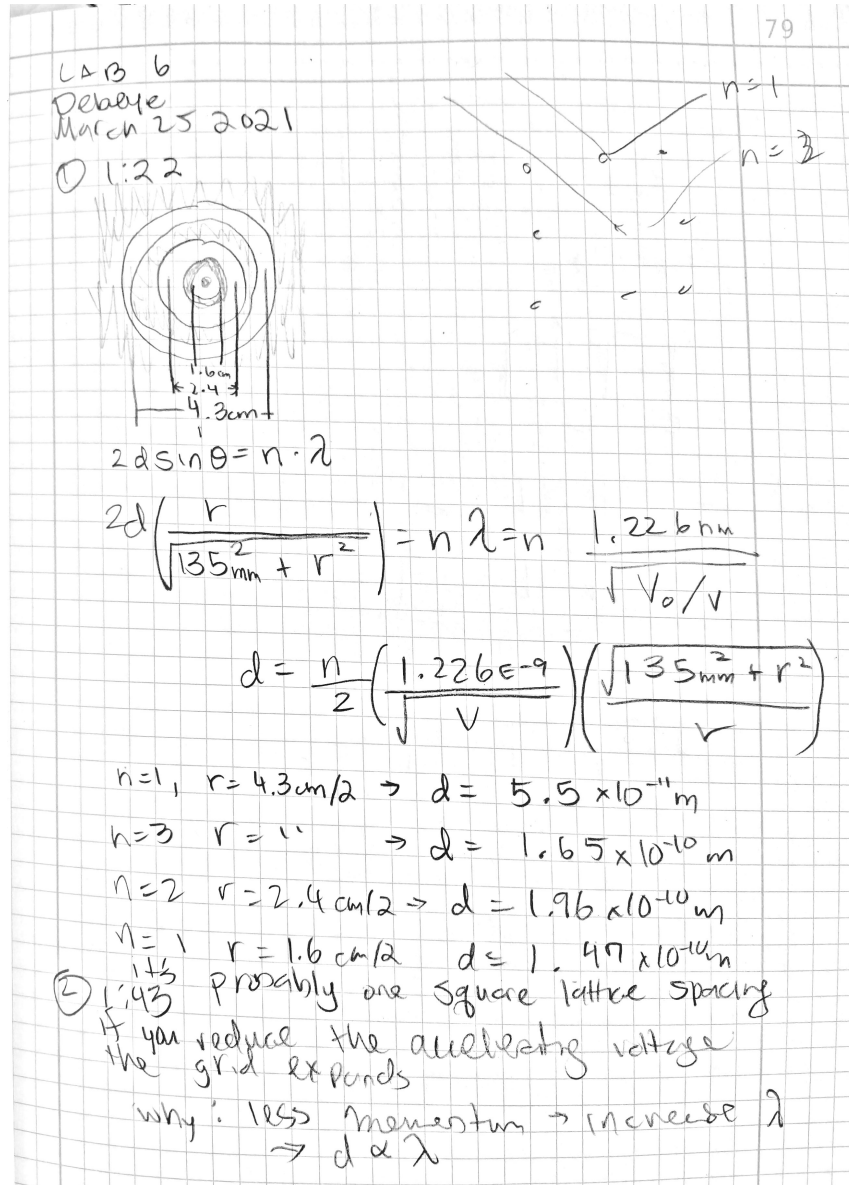 79
LAB 6
Debaye
March 25 2021
① 1:22
n=1
n=3
1.6cm
2.4
4.3cm
2dsinθ = n·λ
2d(r/√(135mm² + r²)) = nλ = n 1.226nm/√(V₀/V)
d = n/2 (1.226E-9/√V)(√(135mm² + r²)/r)
n=1, r= 4.3cm/2 → d= 5.5 x10⁻¹¹m
n=3 r= '' → d= 1.65x10⁻¹⁰ m
n=2 r=2.4cm/2→ d=1.96 x10⁻¹⁰ m
n=1 r=1.6cm/2 d= 1.47x10⁻¹⁰m
it's probably one square lattice spacing
② 1:43
If you reduce the accelerating voltage
the grid expands
why: less momentum → increase λ
⇒ d ∝ λ